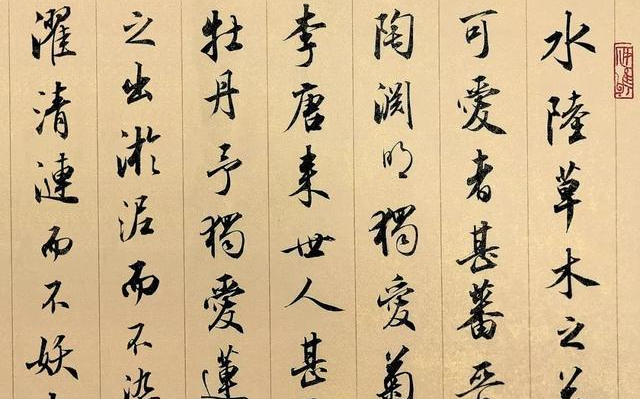 水陸草木之
可愛者甚蕃
陶淵明獨愛菊
李唐来世人甚
牡丹予獨愛蓮
之出淤泥而不染
濯清漣而不妖